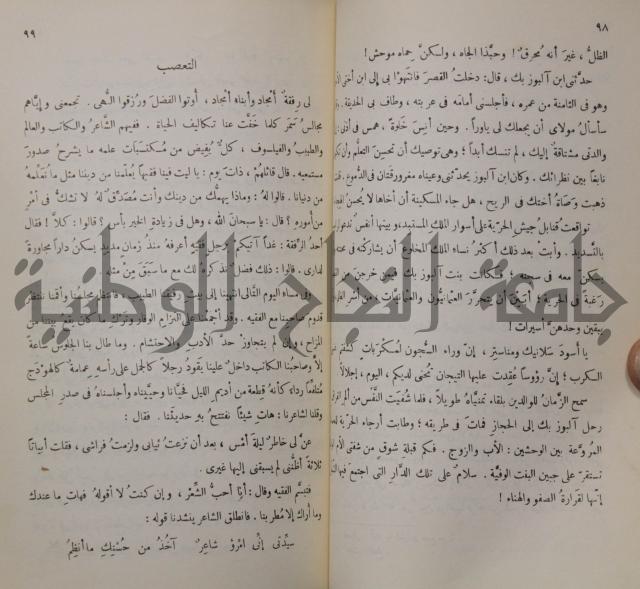 ٩٨
الظلُّ، غير أنه مُحرق! وحبّذا الجاه، ولكنَّ حِماه موحش!
حدّثنى ابن آلبوز بك، قال: دخلتُ القصرَ فانتهَوْا بى إلى ابن أختى
وهو فى الثامنة من عمره، فأجلسنى أمامَه فى عربته، وطاف بى الحديقة.
سأسألُ مولاى أن يجعلك لى ياورًا. وحين أنِسَ خَلْوةً، همس فى أذنى
والدتى مشتاقةٌ إليك، لم تنسك أبدًا؛ وهى توصيك أن تُحسن التعلُّم وأن
نابغًا بين نظرائك. وكان ابن آلبوز يحدّثنى وعيناه مغرورقتان فى الدموع.
ذهبتْ وَصاةُ أختك فى الريح، هل جاء المسكينة أن أخاها لا يُحسنُ
تواقعتْ قنابلُ جيش الحرّية على أسوار الملك المستبد، وبينها أنفسٌ
بالتسديد. وأبتْ بعد ذلك أكثرُ نساء الملك المخلوع أن يشاركنَه فى
يسكنّ معه فى سجنه؛ فكانت بنت آلبوز بك فيمن خرجن من
رَغبةً فى الحرية؛ أيتّفق أن يتحرّرَ العثمانيُّون والعثمانيَّات؛ من أسْر
يبقين وحدهنَّ أسيرات!
يا أسودَ سلانيك ومناستير، إنّ وراء السُّجون لمكرَباتٍ كشفتم
الكرب؛ إنَّ رؤوسًا عُقدت عليها التيجان تُحنى لديكم، اليوم، إجلالاً
سمح الزَّمانُ للوالدين بلقاء تمنّياهُ طويلاً، فلما شُفيَت النَّفس من ألم
رحل آلبوز بك إلى الحجاز فماتَ فى طريقه؛ وطابت أرجاء الحرّية
المُروَّعة بين الوحشين: الأب والزوج. فكم قبلةِ شوقٍ من شفتى
تستقرّ على جبين البنت الوفيَّة. سلامٌ على تلك الدَّار التى اجتمع فيها
إنّها لقرارةُ الصفو والهناء!
٩٩
التعصب
لى رفقةٌ أمجاد وأبناء أمجاد، أوتوا الفضلَ ورُزقوا النُّهى. تجمعنى وإيّاهم
مجالسُ سَمَر كلما خفَّت عنا تكاليف الحياة. ففيهم الشَّاعرُ والكاتبُ والعالم
والطبيبُ والفيلسوف، كلٌّ يُفيض من مكتسَبات علمه ما يشرحُ صدورَ
مستمعيه. قال قائلهم، ذات يوم: يا ليت فينا فقيهًا يُعلّمنا من ديننا مثل ما نَعلمُه
من دنيانا. قالوا له: وماذا يهمّك من دينك وأنت مُصدّق له لا تشكُّ فى أمرٍ
من أموره؟ قال: يا سبحانَ الله، وهل فى زيادة الخير بأس؟ قالوا: كلاّ! فقال
أحدُ الرِّفقة: غدًا آتيكم برجل فقيهٍ أعرفه منذُ زمان مديدٍ يسكنُ دارًا مجاورة
لدارى. قالوا: ذلك فضلٌ نذكرهُ لك مع ما سبَقَ من مِثله.
وفى مساء اليوم التالى انتهينا إلى بيت رفيقنا الطبيب، فانتظم مجلسُنا وأقمنا ننتظر
قدومَ صاحبنا مع الفقيه. وقد أجمعنا على التزام الوقار وترْك ما كان يقع بيننا من
المزاح، وإن لم يتجاوز حدَّ الأدب والاحتشام. وما طال بنا الجلوسُ ساعةً
إلاّ وصاحبنا الكاتب داخلٌ علينا يقودُ رجلاً كالجمَل على رأسه عِمامةٌ كالهودَج
مُتلفّعًا رداءً كأنهُ قطعة من أديم الليل فحيّانا وحيّيناه وأجلسناهُ فى صدر المجلس
وقلنا لشاعرنا: هاتِ شيئًا نفتتحُ بهِ حديثنا. فقال:
عنَّ لى خاطرٌ ليلةَ أمْسِ، بعد أن نزعتُ ثيابى ولزمتُ فراشى، فقلت أبياتًا
ثلاثةً أظنُّنى لم يسبقنى إليها غيرى.
فتبسَّم الفقيه وقال: أنا أحبُّ الشِّعرَ، وإن كنتُ لا أقولهُ فهاتِ ما عندك
وما أراك إلا مُطربنا. فانطلق الشاعر ينشدنا قوله:
سيِّدتى إنِّى امرُؤٌ شاعِرٌ آخُذُ من حُسْنِكِ ما أنظِمُ
جامعة النجاح الوطنية